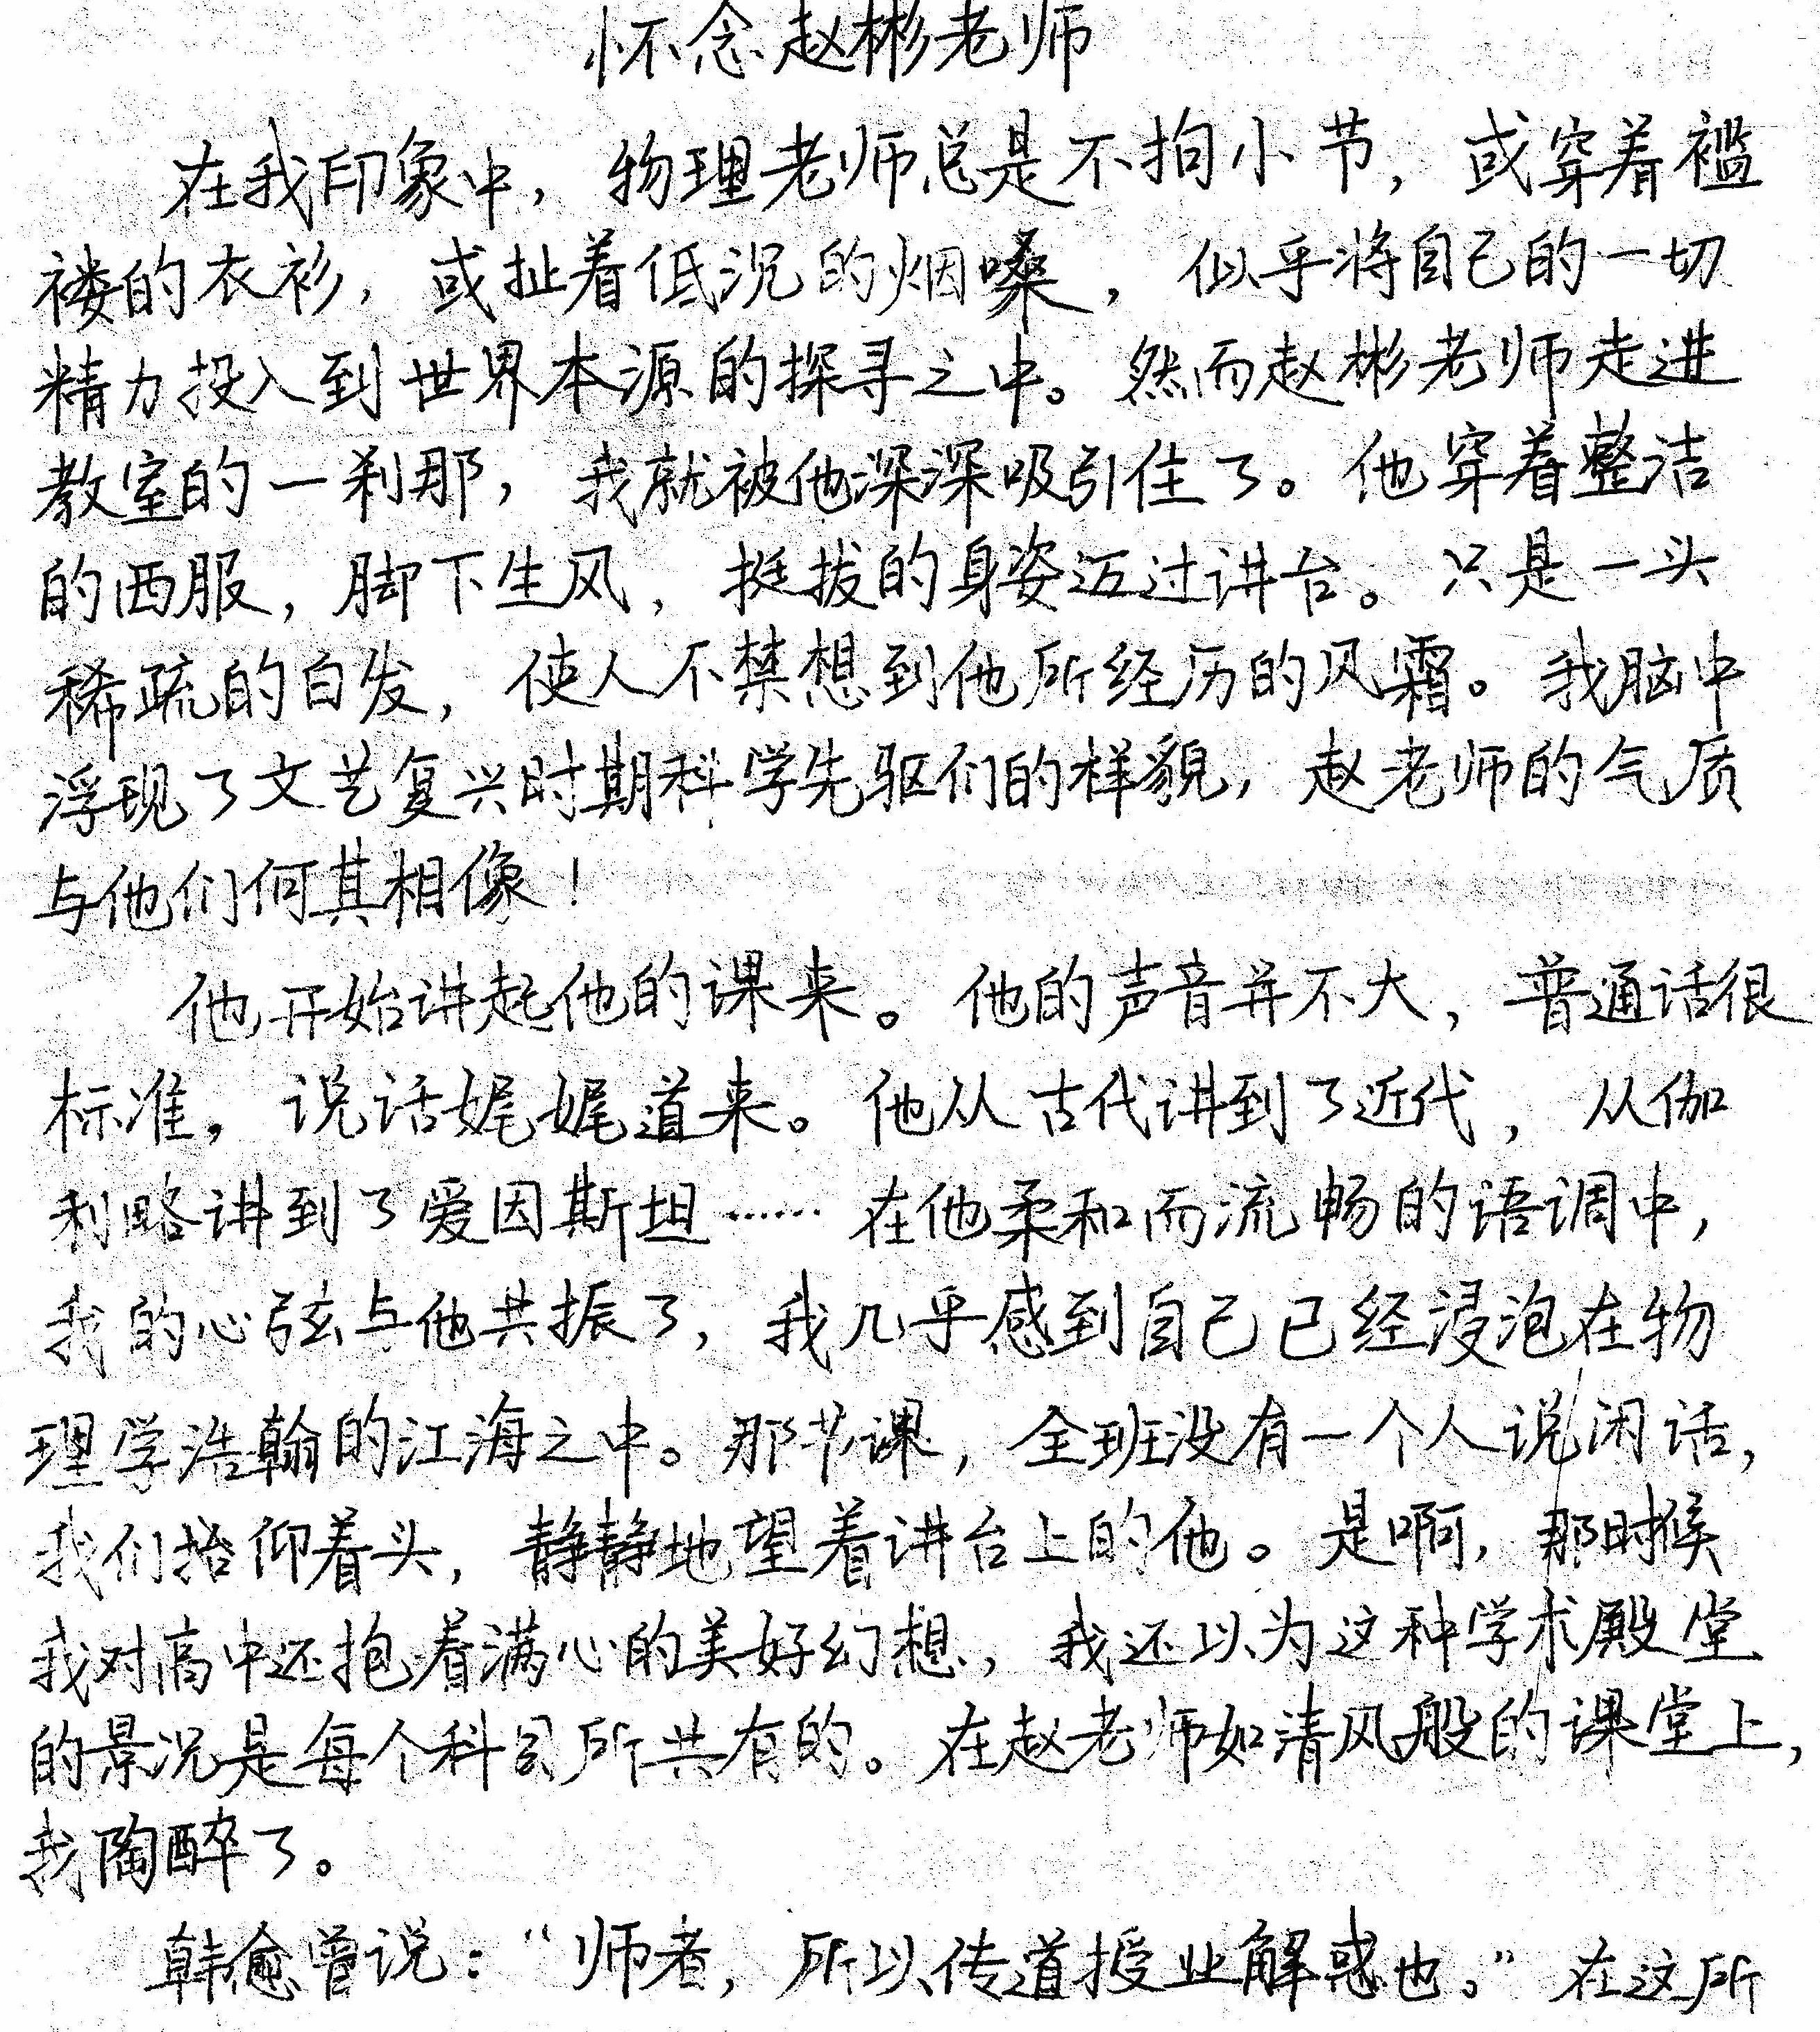 怀念赵彬老师
在我印象中，物理老师总是不拘小节，或穿着褴
褛的衣衫，或扯着低沉的烟嗓，似乎将自己的一切
精力投入到世界本源的探寻之中。然而赵彬老师走进
教室的一刹那，我就被他深深吸引住了。他穿着整洁
的西服，脚下生风，挺拔的身姿迈过讲台。只是一头
稀疏的白发，使人不禁想到他所经历的风霜。我脑中
浮现了文艺复兴时期科学先驱们的样貌，赵老师的气质
与他们何其相像！
他开始讲起他的课来。他的声音并不大，普通话很
标准，说话娓娓道来。他从古代讲到了近代，从伽
利略讲到了爱因斯坦……在他柔和而流畅的语调中，
我的心弦与他共振了，我几乎感到自己已经浸泡在物
理学浩翰的江海之中。那节课，全班没有一个人说闲话，
我们抬仰着头，静静地望着讲台上的他。是啊，那时候
我对高中还抱着满心的美好幻想，我还以为这种学术殿堂
的景况是每个科目所共有的。在赵老师如清风般的课堂上，
我陶醉了。
韩愈曾说：“师者，所以传道授业解惑也。”在这所